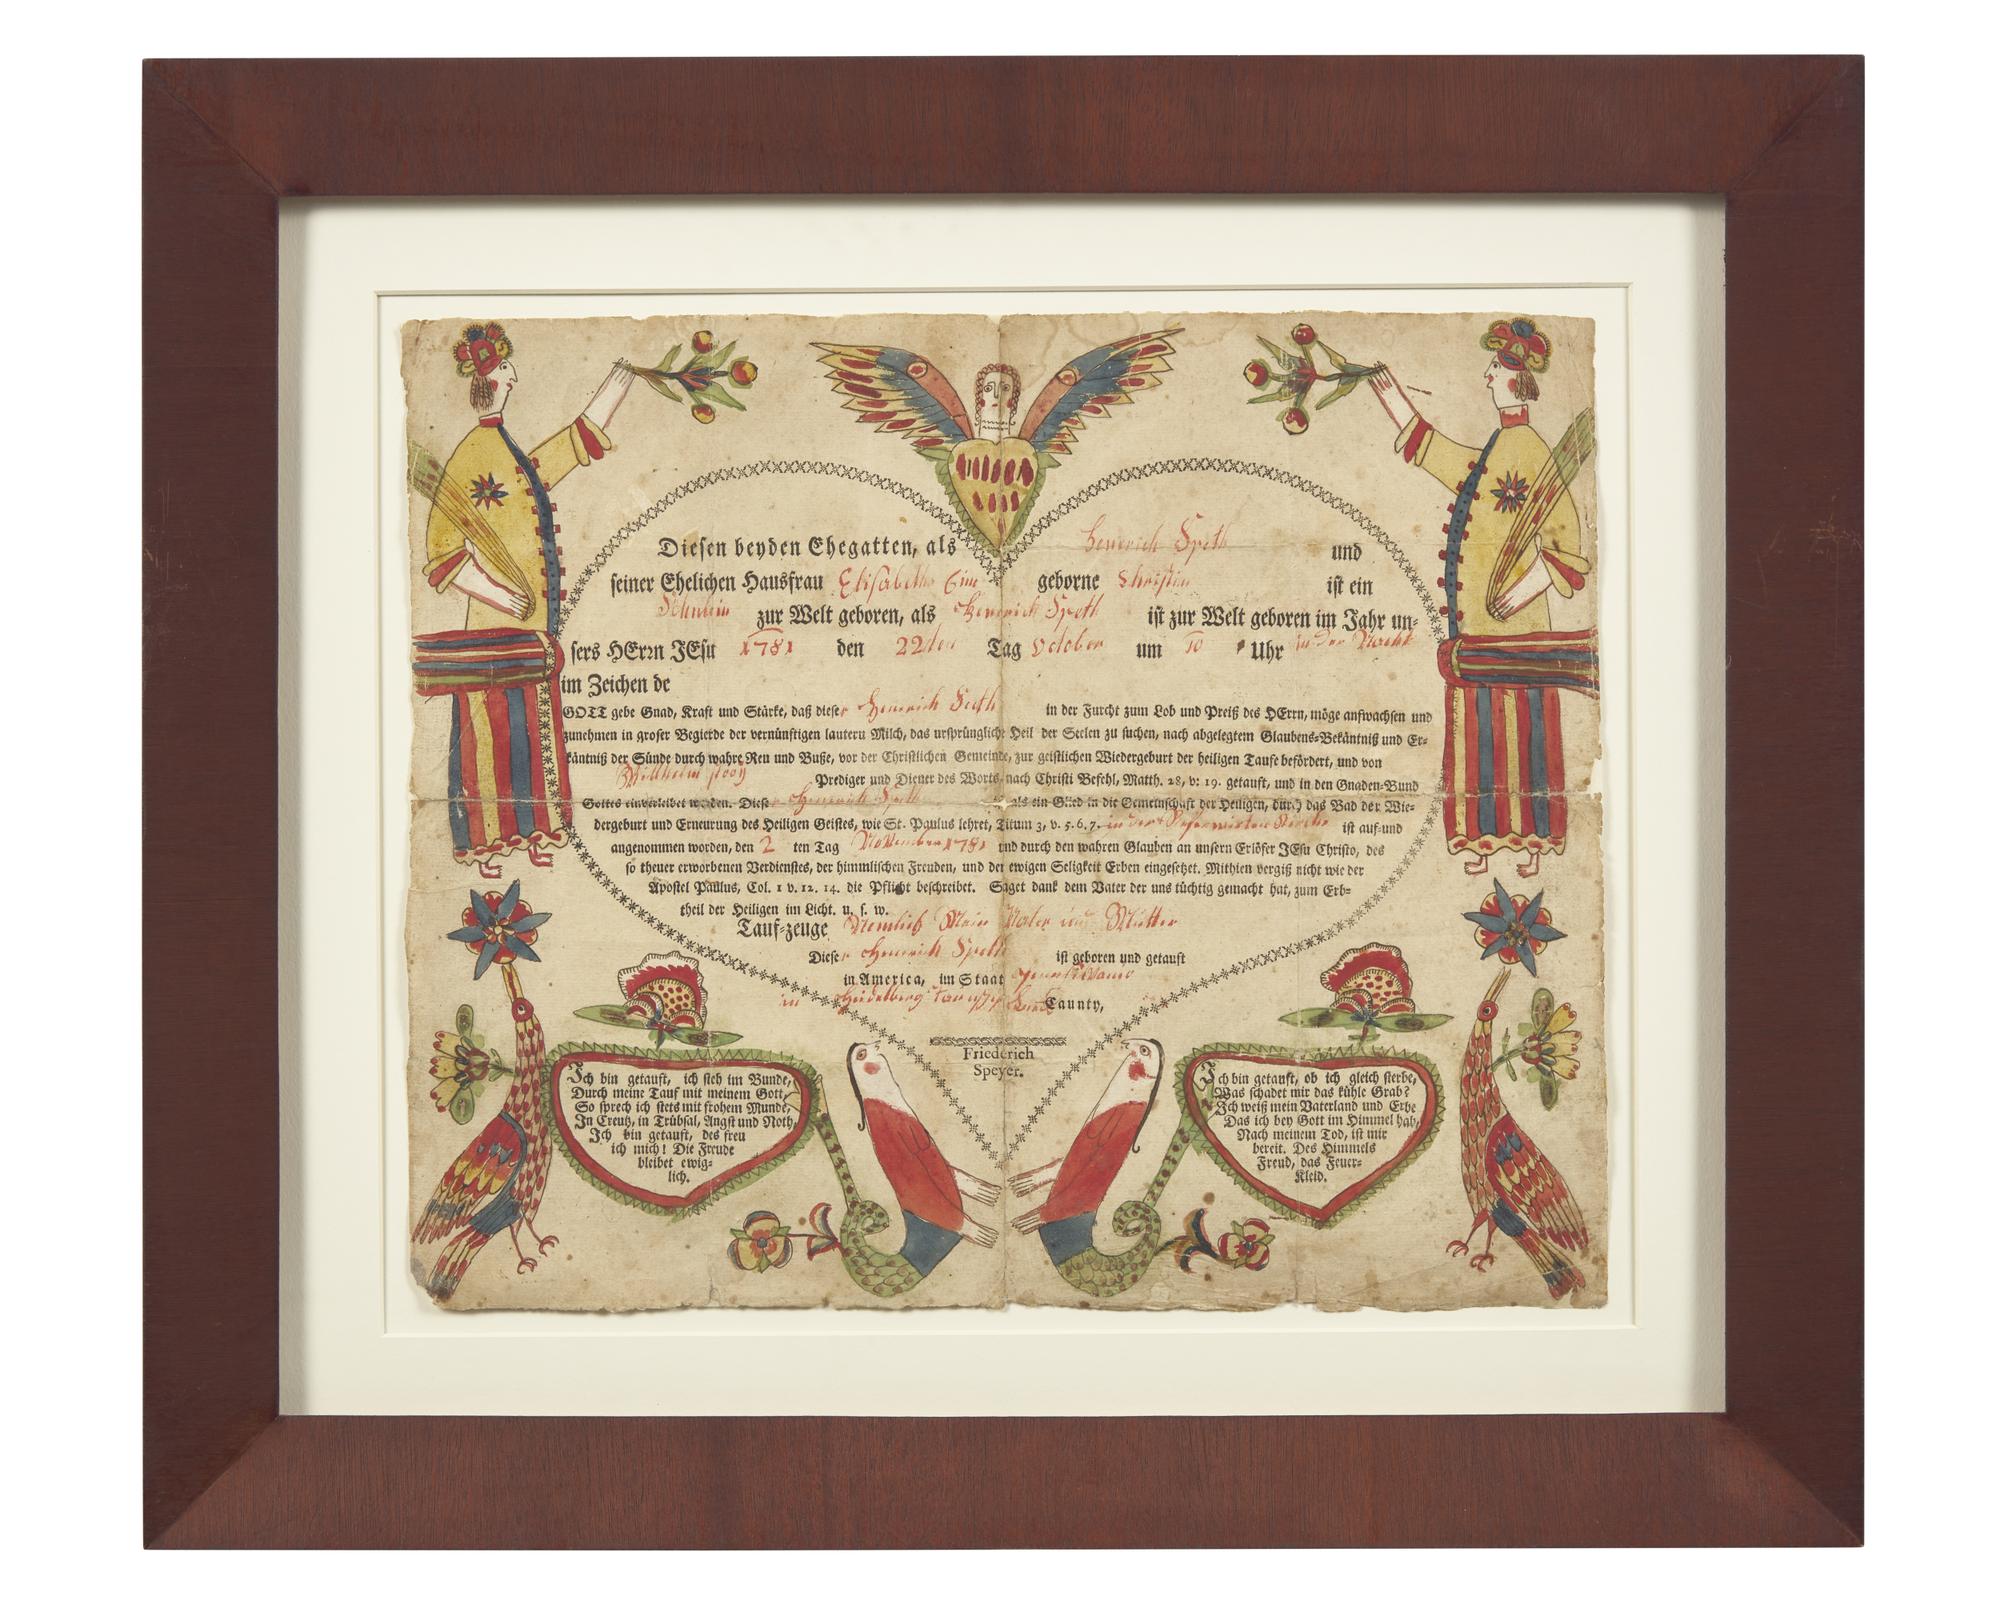 Diesen beyden Ehegatten, als Henrich Speth und
seiner Ehelichen Hausfrau Elisabeth Eine geborne Christin ist ein
zur Welt geboren, als Henrich Speth ist zur Welt geboren im Jahr un-
sers HErrn JEsu 1781 den 22ten Tag October um 10 Uhr in der Nacht
im Zeichen de
GOTT gebe Gnad, Kraft und Stärke, daß dieser Henrich Speth in der Furcht zum Lob und Preiß des HErrn, möge anfwachsen und
zunehmen in groser Begierde der vernünftigen lautern Milch, das ursprüngliche Heil der Seelen zu suchen, nach abgelegtem Glaubens-Bekäntniß und Er-
käntniß der Sünde durch wahre Reu und Buße, vor der Christlichen Gemeinde, zur geistlichen Wiedergeburt der heiligen Taufe befördert, und von
Willhelm Prediger und Diener des Worts nach Christi Befehl, Matth. 28, v: 19. getauft, und in den Gnaden-Bund
Gottes einverleibet worden. Dieser Henrich Speth als ein Glied in die Gemeinschaft der Heiligen, durch das Bad der Wie-
dergeburt und Erneurung des Heiligen Geistes, wie St. Paulus lehret, Titum 3, v. 5. 6. 7. in der Reformirten Kirche ist auf-und
angenommen worden, den 2 ten Tag November 1781 und durch den wahren Glauben an unsern Erlöser JEsu Christo, des
so theuer erworbenen Verdienstes, der himmlischen Freuden, und der ewigen Seligkeit Erben eingesetzet. Mithien vergiß nicht wie der
Apostel Paulus, Col. 1 v. 12. 14. die Pflicht beschreibet. Saget dank dem Vater der uns tüchtig gemacht hat, zum Erb-
theil der Heiligen im Licht. u. s. w.
Tauf-zeuge Nemlich Mein Vater und Mutter
Dieser Henrich Speth ist geboren und getauft
in America, im Staat
im Heidelberg Caunty,
Friederich
Speyer.
Ich bin getauft, ich steh im Bunde,
Durch meine Tauf mit meinem Gott,
So sprech ich stets mit frohem Munde,
In Creutz, in Trübsal, Angst und Noth,
Ich bin getauft, des freu
ich mich! Die Freude
bleibet ewig-
lich.
Ich bin getauft, ob ich gleich sterbe,
Was schadet mir das kühle Grab?
Ich weiß mein Vaterland und Erbe
Das ich bey Gott im Himmel hab,
Nach meinem Tod, ist mir
bereit. Des Himmels
Freud, das Feuer-
Kleid.